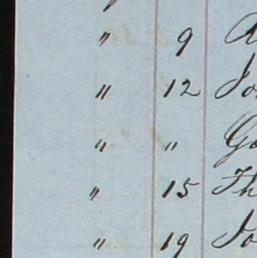 " 9
" 12 Jo
" " Ge
" 15 Th
" 19 Jo